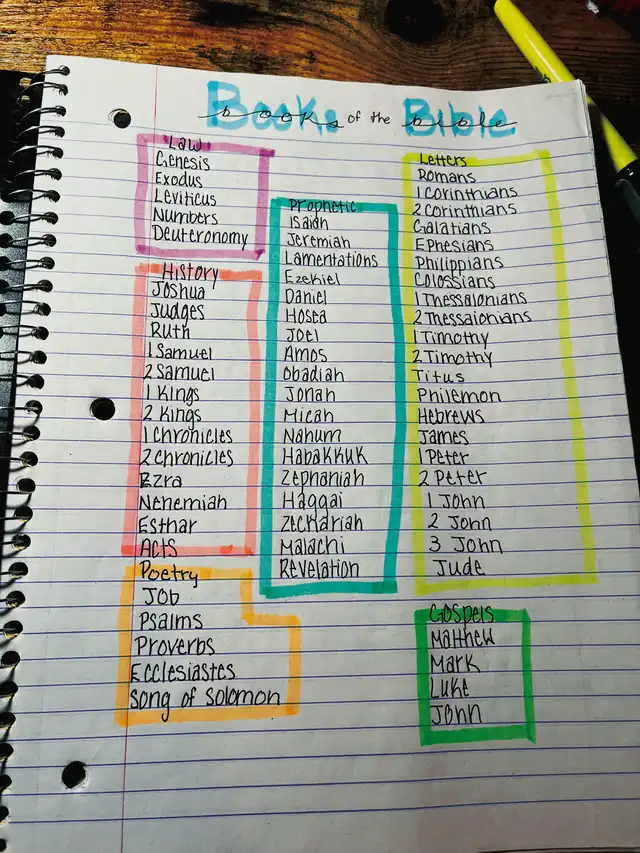 Books of the Bible
books bible
Law
Genesis
Exodus
Leviticus
Numbers
Deuteronomy
History
Joshua
Judges
Ruth
1 Samuel
2 Samuel
1 Kings
2 Kings
1 Chronicles
2 Chronicles
Ezra
Nehemiah
Esthar
Acts
Poetry
Job
Psalms
Proverbs
Ecclesiastes
Song of Solomon
Prophetic
Isaiah
Jeremiah
Lamentations
Ezekiel
Daniel
Hosea
Joel
Amos
Obadiah
Jonah
Micah
Nahum
Habakkuk
Zephaniah
Haggai
Zechariah
Malachi
Revelation
Letters
Romans
1 Corinthians
2 Corinthians
Galatians
Ephesians
Philippians
Colossians
1 Thessalonians
2 Thessalonians
1 Timothy
2 Timothy
Titus
Philemon
Hebrews
James
1 Peter
2 Peter
1 John
2 John
3 John
Jude
Gospels
Matthew
Mark
Luke
John